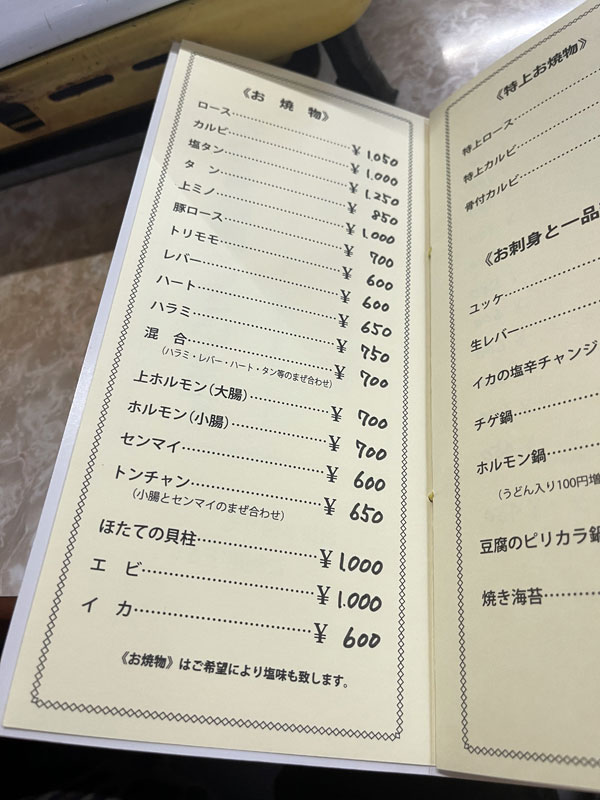 《お焼物》
ロース…… ¥1,050
カルビ…… ¥1,000
塩タン…… ¥1,250
タン…… ¥850
上ミノ…… ¥1,000
豚ロース…… ¥700
トリモモ…… ¥600
レバー…… ¥600
ハート…… ¥650
ハラミ…… ¥750
混合…… ¥700
(ハラミ・レバー・ハート・タン等のまぜ合わせ)
上ホルモン(大腸)…… ¥700
ホルモン(小腸)…… ¥700
センマイ…… ¥600
トンチャン…… ¥650
(小腸とセンマイのまぜ合わせ)
ほたての貝柱…… ¥1,000
エビ…… ¥1,000
イカ…… ¥600
《お焼物》はご希望により塩味も致します。
《特上お焼物》
特上ロース……
特上カルビ……
骨付カルビ……
《お刺身と一品
ユッケ……
生レバー……
イカの塩辛チャンジ
チゲ鍋……
ホルモン鍋……
(うどん入り100円増
豆腐のピリカラ鍋
焼き海苔……